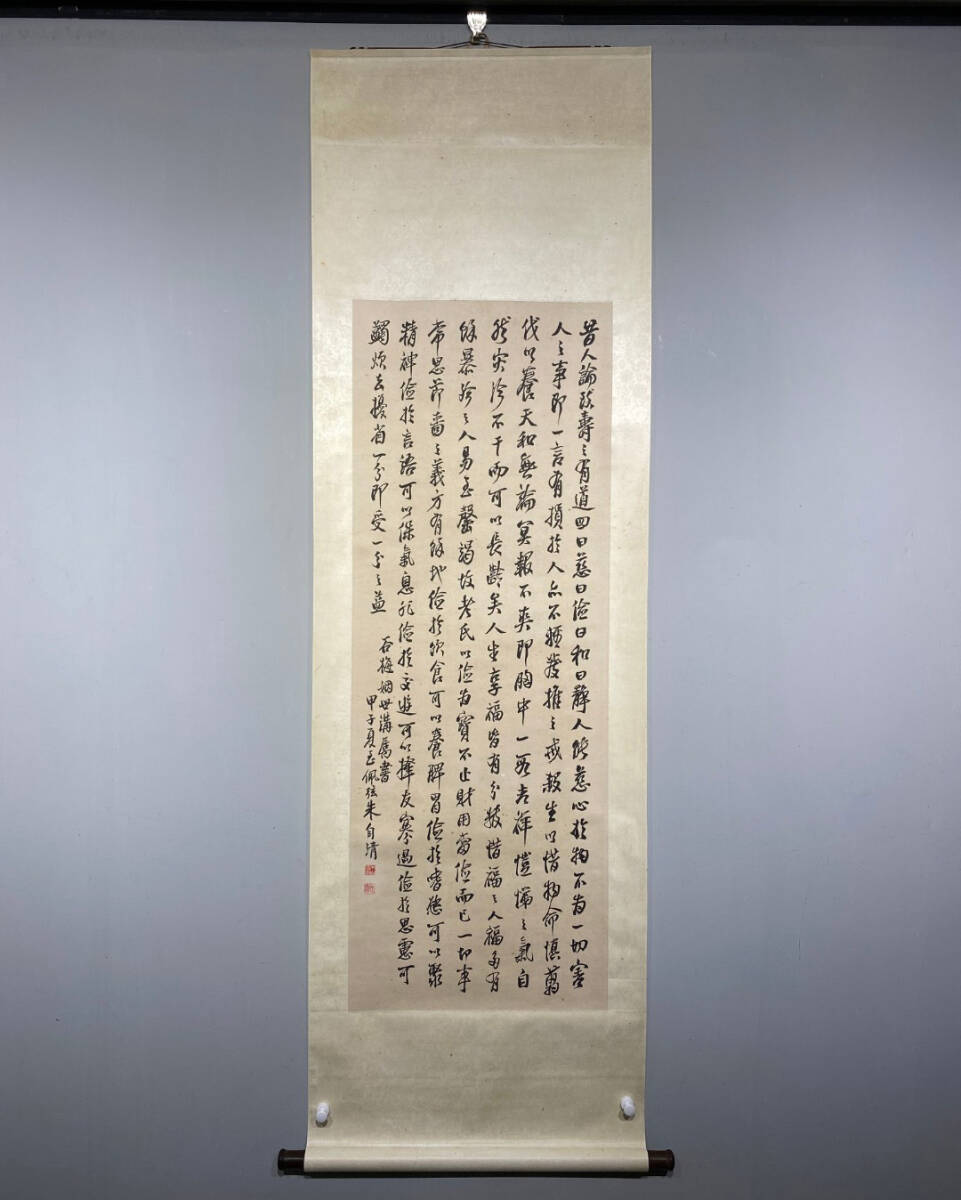 昔人論致壽之有道四曰慈曰儉曰和曰靜人能慈心於物不爲一切害
人之事即一言有損於人亦不輕發推之戒殺生以惜物命慎翦
伐以養天和無論冥報不爽即胸中一段吉祥愷悌之氣自
然灾沴不干而可以長齡矣人生享福皆有分數惜福之人福每有
餘暴殄之人易至罄竭故老氏以儉爲寶不止財用當儉而已一切事
常思節嗇之義方有餘地儉於飲食可以養脾胃儉於嗜慾可以聚
精神儉於言語可以保氣息非儉於交遊可以擇友寡過儉於思慮可
蠲煩去擾省一分即受一分之益
石梅姻世講屬書
甲子夏至佩弦朱自清